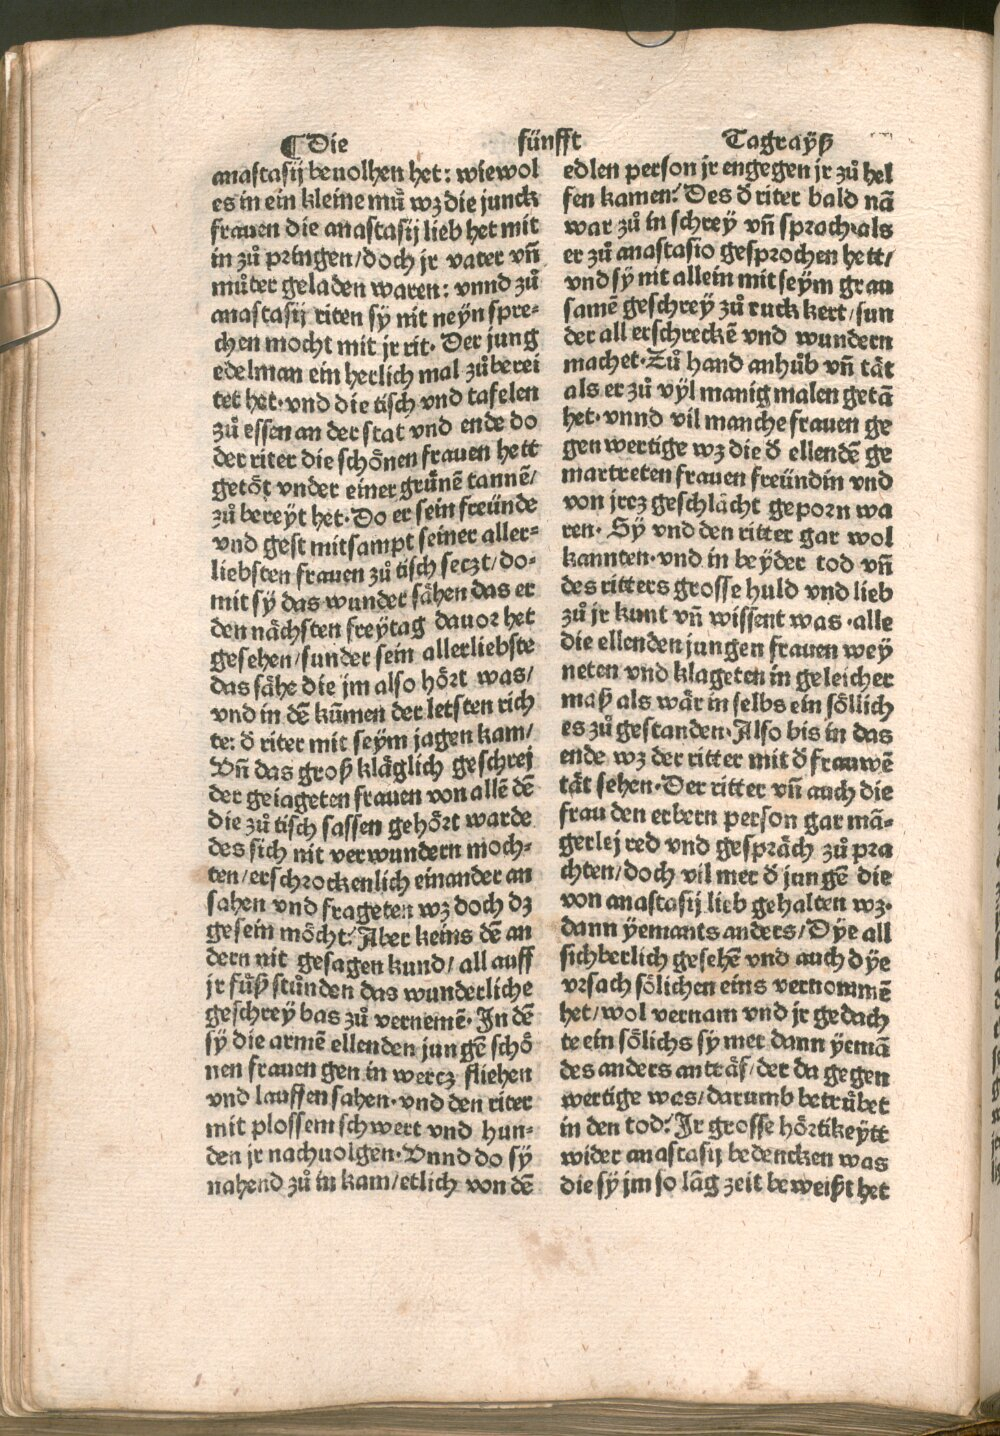 ¶ Die fünfft Tagrayß
anastasij beuolhen het: wiewol
es in ein kleine mu̇ wz die junck
frauen die anastasij lieb het mit
in zů pringen/doch jr vater vñ
můter geladen waren: vnnd zů
anastasij riten sy nit neyn spre-
chen mocht mit jr rit· Der jung
edelman ein herlich mal zůberei
tet het·vnd die tisch vnd tafelen
zů essen an der stat vnd ende do
der riter die schönen frauen hett
getöt vnder einer grünē tannē/
zů bereyt het·Do er sein freünde
vnd gest mitsampt seiner aller-
liebsten frauen zů tisch seczt/do-
mit sÿ das wunder sähen das er
den nächsten freÿtag dauor het
gesehen/sunder sein allerliebste
das sähe die jm also hört was/
vnd in dē kūmen der letsten rich
te: d̄ riter mit seÿm jagen kam/
Vñ das groß kläglich geschrej
der geiageten frauen von allē dē
die zů tisch sassen gehört warde
des sich nit verwundern moch-
ten/erschrockenlich einander an
sahen vnd frageten wz doch dz
gesein möcht? Aber keins dē an
dern nit gesagen kund/ all auff
jr füß stůnden das wunderliche
geschreÿ bas zů vernemē· In dē
sÿ die armē ellenden jungē schö
nen frauen gen in wercz fliehen
vnd lauffen sahen·vnd den riter
mit plossem schwert vnd hun-
den jr nachuolgen·Vnnd do sÿ
nahend zů in kam/etlich von dē
edlen person jr engegen jr zů hel
fen kamen? Des d̄ riter bald nā
war zů in schreÿ vñ sprach·als
er zů anastasio gesprochen hett/
vnd sÿ nit allein mit seÿm grau
samē geschreÿ zů ruck kert/sun
der all erschreckē vnd wundern
machet·Zů hand anhůb vñ tät
als er zů vÿl manig malen getā
het·vnnd vil manche frauen ge
genwertige wz die d̄ ellendē ge
martreten frauen freündin vnd
von jrcz geschlächt geporn wa
ren· Sÿ vnd den ritter gar wol
kannten·vnd in beÿder tod vñ
des ritters grosse huld vnd lieb
zů jr kunt vñ wissent was ·alle
die ellenden jungen frauen weÿ
neten vnd klageten in geleicher
maß als wär in selbs ein söllich
es zů gestanden·Also bis in das
ende wz der ritter mit d̄ frauwē
tät sehen·Der ritter vñ auch die
frau den erbern person gar mā-
gerlej red vnd gespräch zů pra
chten/doch vil mer d̄ jungē die
von anastasij lieb gehalten wz·
dann ÿemants anders/Dÿe all
sichberlich gesehē vnd auch dÿe
vrsach sölichen eins vernommē
het/wol vernam vnd jr gedach
te ein sölichs sÿ mer dann ÿemā
des anders anträf/der da gegen
wertige was/darumb betrübet
in den tod? Ir grosse hörtikeÿtt
wider anastasij bedencken was
die sÿ jm so lāg zeit beweißt het